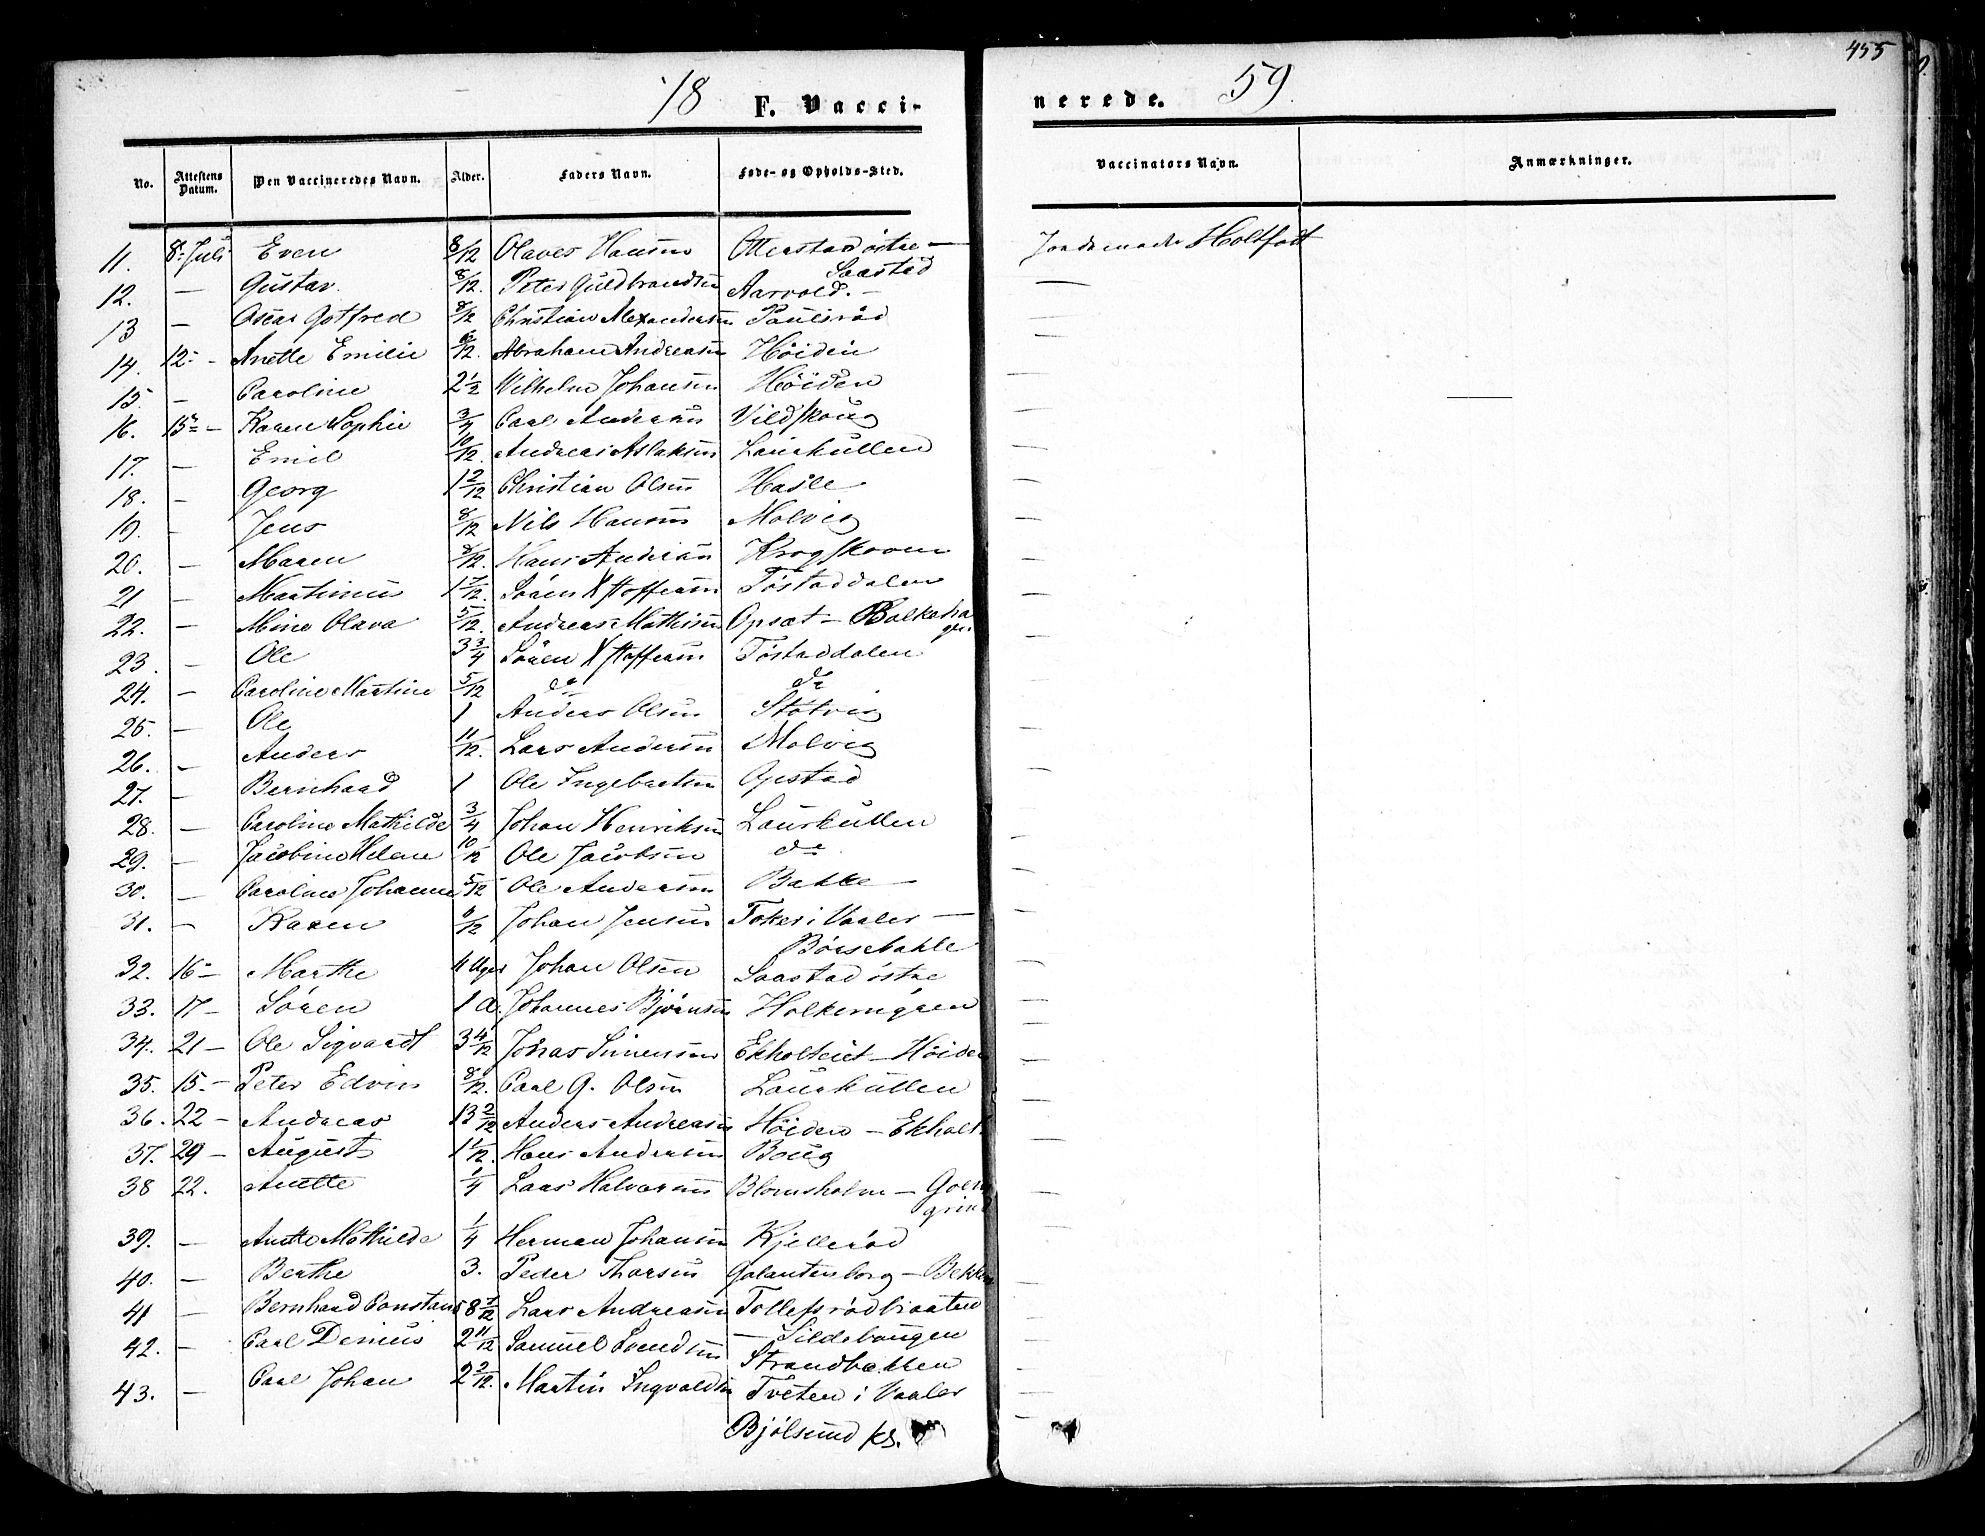 455
18 F. Vacci-
nerede. 59.
No. Attestens Datum. Den Vaccineredes Navn. Alder. Faders Navn. Føde- og Opholds-Sted.
Vaccinators Navn. Anmærkninger.
11. 8. Juli Even 8/12 Olaves Hansen Otterstad østre — Jordemoder Holtfodt
Saastad
12. — Gustav. 8/12. Peter Guldbrandsen Aarvold. —
13 — Oscar Gotfred 8/12 Christian Alexandersen Paulsrød —
14. 12 — Anette Emilie 6/12. Abraham Andreasen Höiden —
15. — Caroline 2 1/2 Vilhelm Johansen Höiden —
16. 15 — Karen Sophie 3/4 Carl Andersen Vildskoug —
17. — Emil 10/12. Andreas Aslaksen Laurkullen —
18. — Georg 1 2/12 Christian Olsen Hasle —
19. — Jens 8/12 Nils Hansen Molvig —
20. — Maren 8/12. Hans Andersen Krogskoven —
21 — Martinus 1 7/12. Sören Xstoffersen Töstaddalen —
22. — Mina Olava 5/12. Andreas Mathisen Opsat —
23. — Ole 3 3/4 Sören Xstoffersen Töstaddalen —
24. — Caroline Martine 5/12 do do —
25. — Ole 1 Anders Olsen Støtvig —
26. — Anders 11/12. Lars Andersen Molvig —
27. — Bernhard 1 Ole Ingebretsen Opstad —
28. — Caroline Mathilde 3/4 Johan Henriksen Laurkullen —
29. — Jacobine Helene 10/12 Ole Jacobsen do —
30. — Caroline Johanne 5/12 Ole Andersen Bakke —
31. — Karen 6/12 Johan Jensen Toker i Vaaler —
Börsebakke
32. 16 — Marthe 4 Uger Johan Olsen Saastad østre —
33. 17 — Sören 1 A. Johannes Björnsen —
34. 21 — Ole Sigvardt 3 4/12 Jonas Simensen Ekholteiet — Höiden —
35. 15. — Peter Edvin 8/12. Carl G. Olsen Laurkullen —
36. 22 — Andreas 13 2/12 Anders Andreasen Höiden — Ekholt —
37. 29 — August 1 1/12. Hans Andersen Boug —
38 22. Anette 1/4 Lars Halvorsen Blomsholm —
39. — Anette Mathilde 1/4 Herman Johansen Kjellerød —
40. — Berthe 3. Peder Thorsen Galautenborg — Bekken —
41 — Bernhard Constans 8 1/12 Lars Andreasen Tollefsrødbraaten —
— Sildebougen
42. — Carl Denius 2 11/12 Samuel Svendsen Strandbakken —
43. — Carl Johan 2 2/12. Martin Ingvaldsen Tveten i Vaaler —
Bjölsund